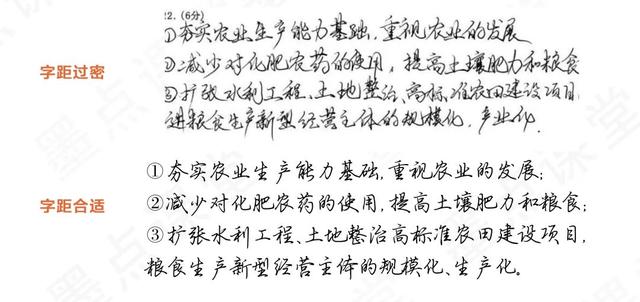 12. (6分)
①夯实农业生产能力基础,重视农业的发展
字距过密
②减少对化肥农药的使用,提高土壤肥力和粮食
③扩张水利工程、土地整治、高标准农田建设项目
进粮食生产新型经营主体的规模化,产业化.
①夯实农业生产能力基础,重视农业的发展;
字距合适
②减少对化肥农药的使用,提高土壤肥力和粮食;
③扩张水利工程、土地整治高标准农田建设项目,
粮食生产新型经营主体的规模化、生产化。
墨点课堂